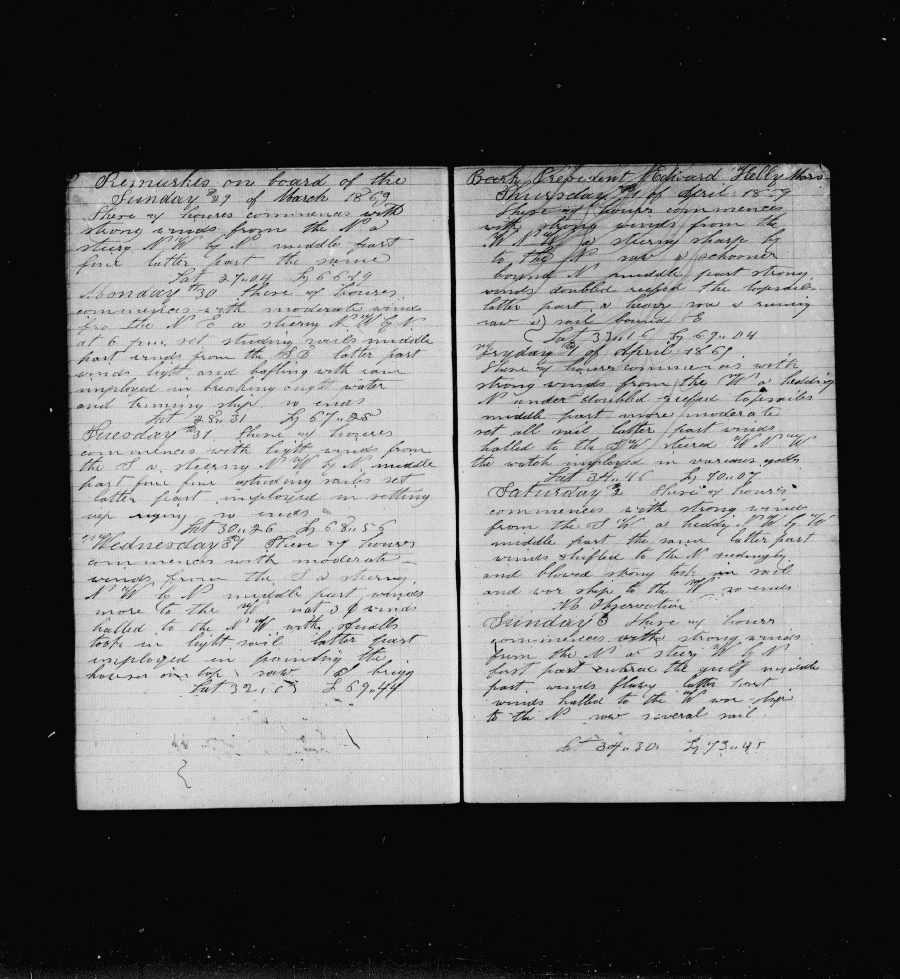 Remarkes on board of the
Sunday 29 of March 1869
These 24 houres commences with
strong winds from the N a
stierg N W by N middle part
fine latter part the same
Lat 27..04 Lg 66..19
Monday 30 these 24 houres
commences with moderate winds
fro the N E a stierng N W by N
at 6 set studing sailes middle
part winds from the S E latter part
winds light and bafling with rain
imployed in breaking out water
and triming ship so ends
Lat 28..31 Lg 67..28
Tuesday 31 these 24 houres
commences with light winds from
the S a stierng N W by N middle
part fine studing sailes set
latter part imployed in setting
up riging so ends
Lat 30..26 Lg 68..56
Wednesday 31 these 24 houres
commences with moderate
winds from the S a stierng
N W by N middle part winds
more to the W winds
halled to the N W with squalls
took in light sail latter part
imployed in pounding the
houses on top saw a brigg
Lat 32..03 Lg 69..44
Bark President Edward Kelly
Thursday 1 of April 1869
these 24 hours commences
with strong winds from the
W N W a stierng sharp by
to the N saw a schooner
bound N middle part strong
winds doubled reefed the topsailes
latter part a heavy sea a runing
saw a sail bound E
Lat 33..16 Lg 69..04
Fryday 1 of April 1869
these 24 houres commences with
strong winds from the W a hedding
N under doubled reefed topsailes
middle part more moderate
set all sail latter part winds
halled to the S W steered W N W
the watch imployed in various jobs
Lat 34..46 Lg 70..07
Saturday 2 these 24 houres
commences with strong winds
from the S W a hedding N W by W
middle part the same latter part
winds shifted to the N
and blowed strong took in sail
and wor ship to the W so ends
No Observation
Sunday 3 these 24 hours
commences with strong winds
from the N a stierg W by N
first part entered the gulf middle
part winds latter part
winds halled to the W wor ship
to the N saw several sail
Lat 34..30 Lg 73..45